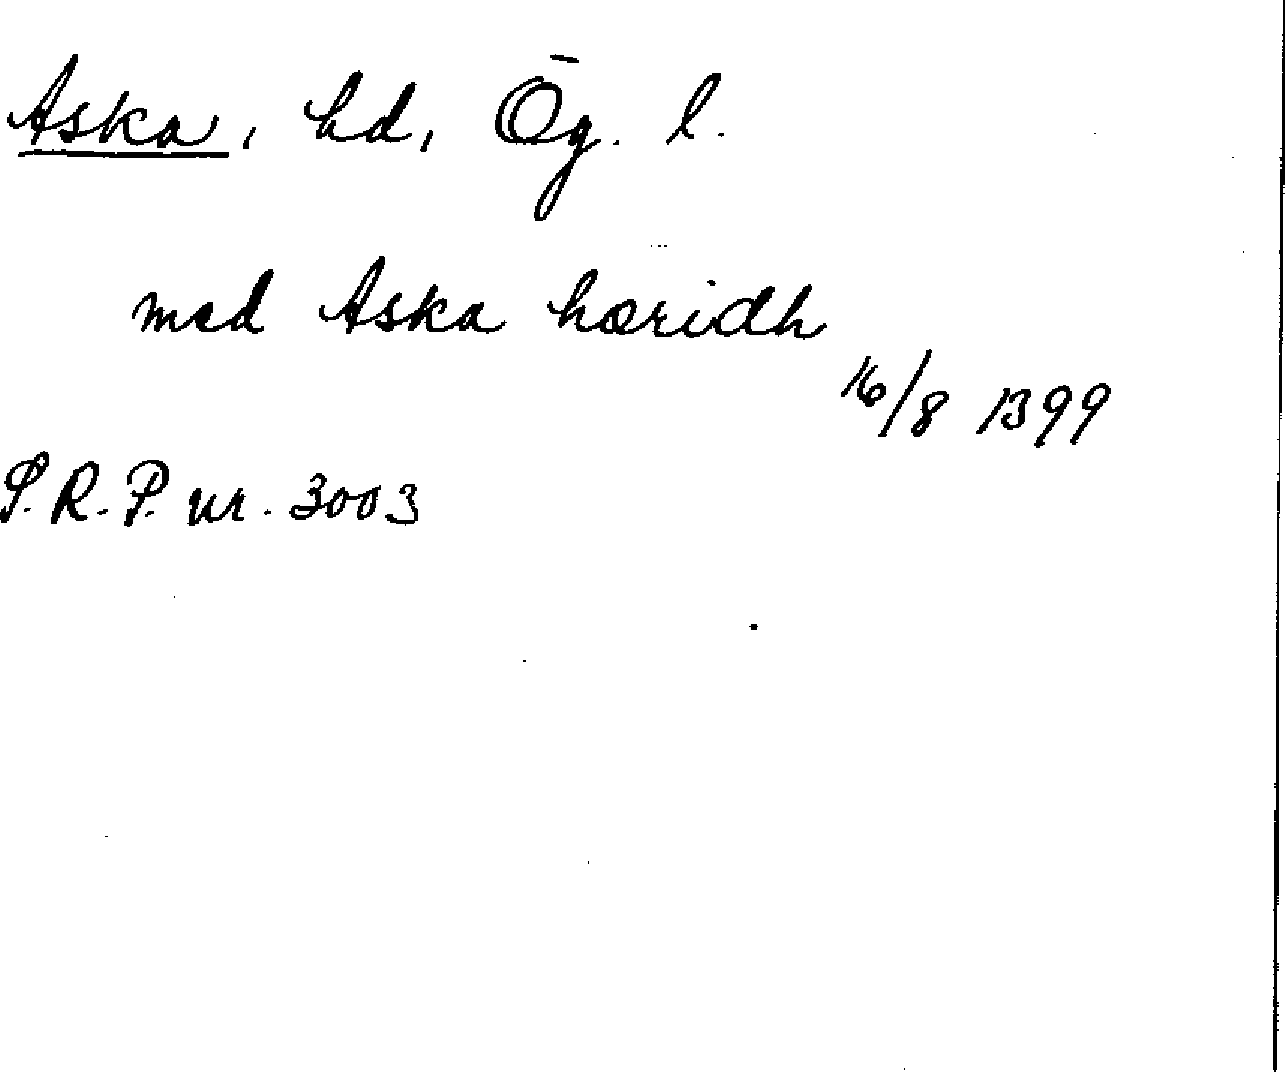 Aska, hd, Ög. l.
med Aska hæridh
16/8 1399
S.R.P. nr. 3003